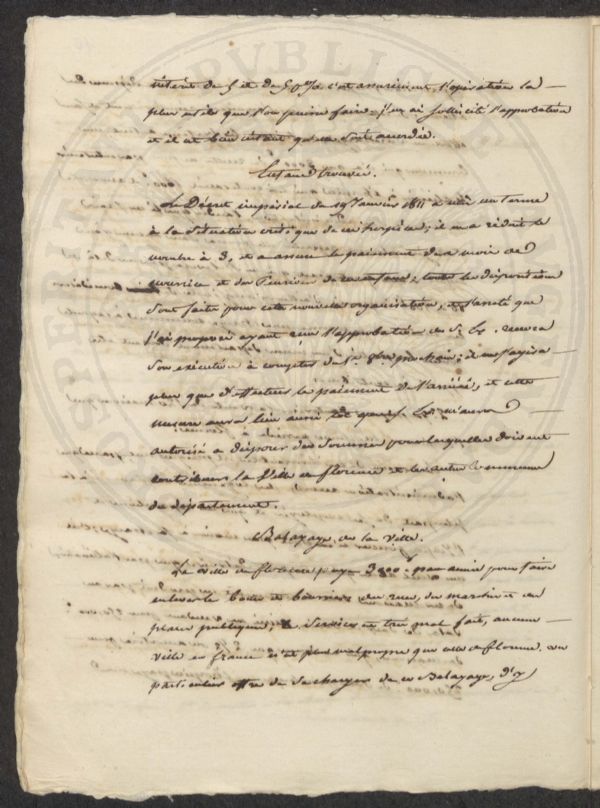 intérêts de 5 et de 5 p% c'est assurément l'opération la
plus utile que l'on puisse faire; j'en ai sollicité l'approbation
et il est bien instant qu'elle soit accordée.
Enfans trouvés.
Le Décret impérial du 19 Janvier 1811 a mis un terme
à la situation critique de ces hospices; il en a réduit le
nombre à 3, et a assuré le paiement des mois de
nourrice et des Pensions de ces enfans; toutes les dispositions
sont faites pour cette nouvelle organisation, et l'arrêté que
j'ai proposé ayant reçu l'approbation de S. Ex. recevra
son exécution à compter du 1er 8bre prochain; il ne s'agira
plus que d'effectuer le paiement de l'arriéré, et cette
mesure aura lieu aussitôt que S. Ex. m'aura
autorisé à disposer des sommes pour lesquelles doivent
contribuer la Ville de florence et les autres Communes
du département.
Balayage de la ville.
La ville de florence paye 3000 par année pour faire
enlever les boues et bourriers des rues, des marchés et des
places publiques; le service est très mal fait, aucune
ville en france n'est plus malpropre que celle de florence. un
particulier offre de se charger de ce Balayage, d'y